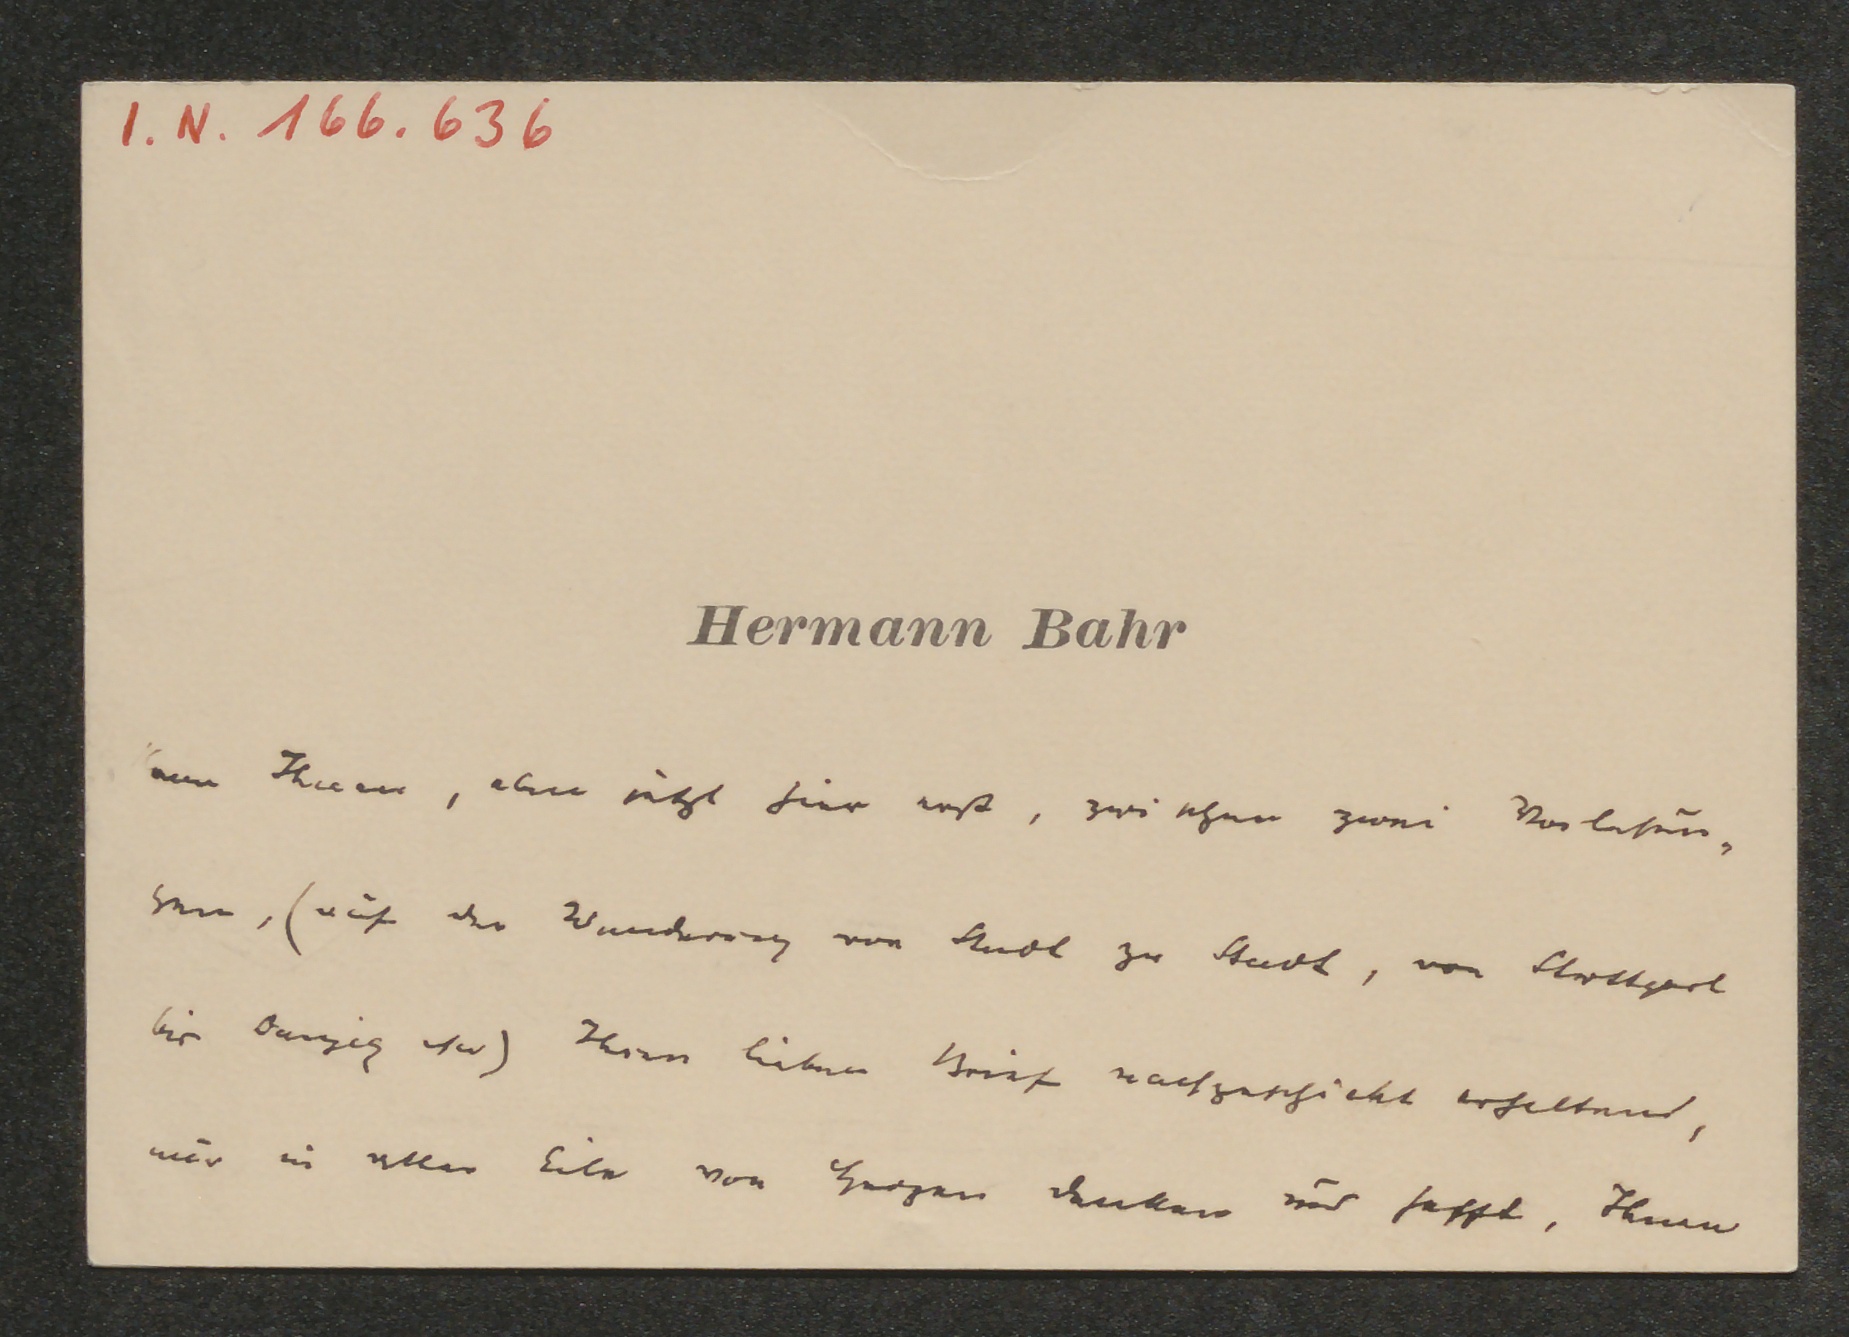 I. N. 166.636
Hermann Bahr
kann Ihnen, eben jetzt hier erst, zwischen zwei Vorlesun-
gen, (auf der Wanderung von Stadt zu Stadt, von Stuttgart
bis Danzig usw) Ihren lieben Brief nachgeschickt erhaltend,
nur in aller Eile von Herzen danken und hofft, Ihnen